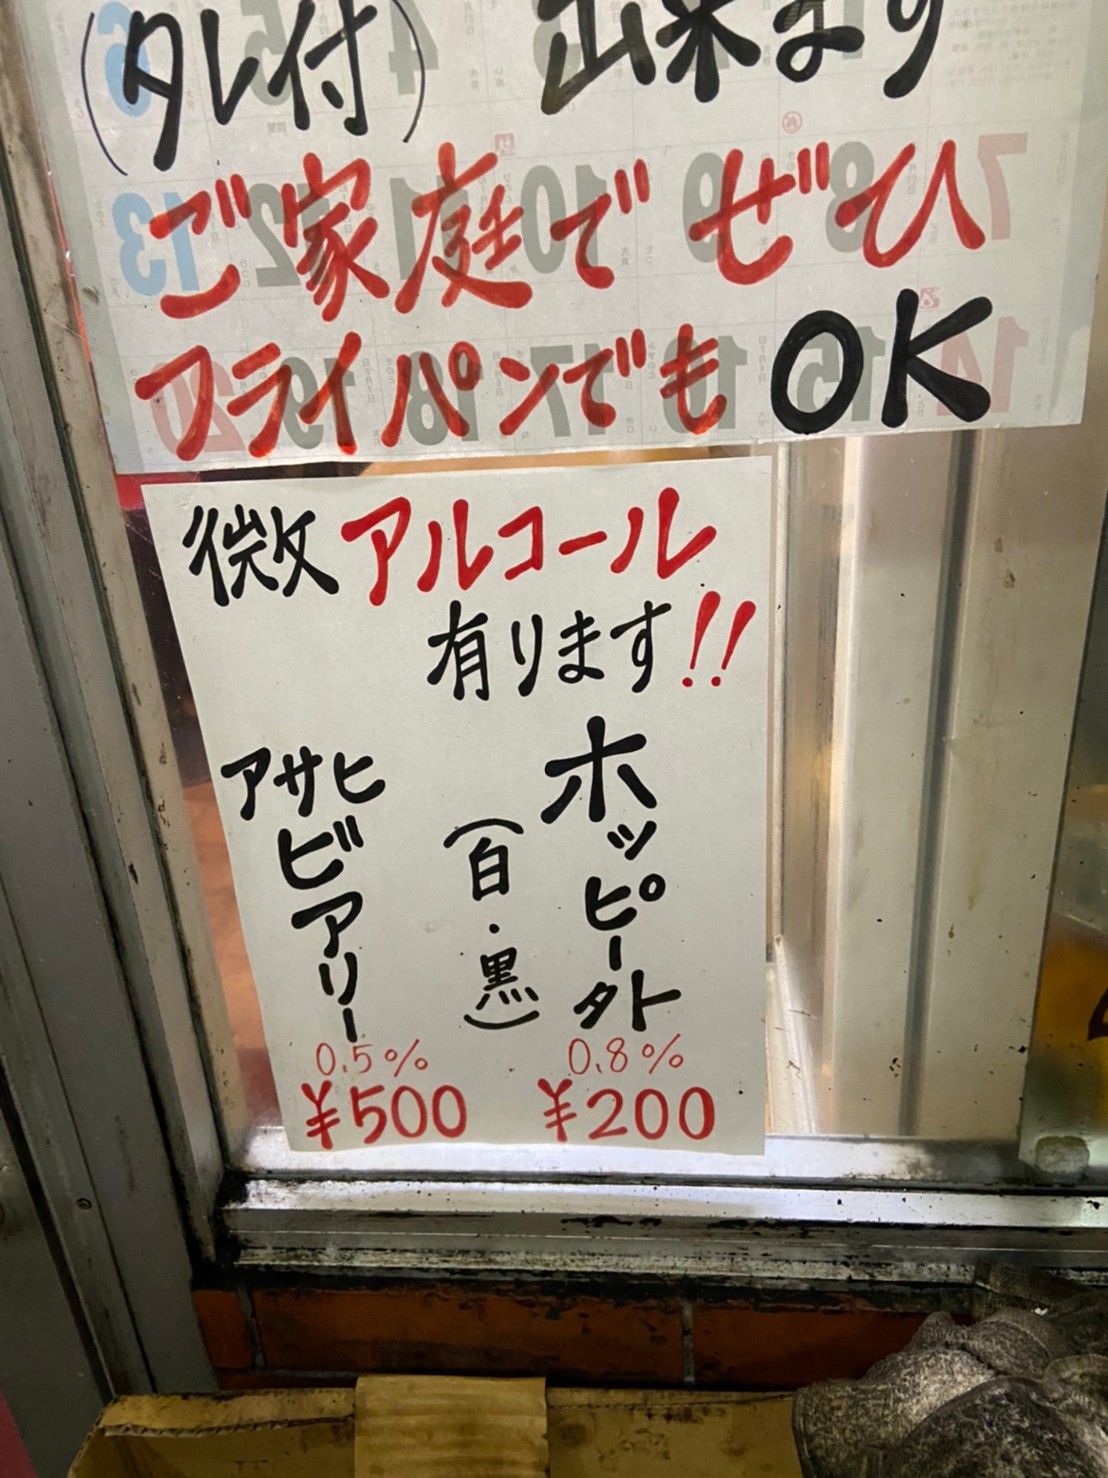 (タレ付) 出来ます
ご家庭でぜひ
フライパンでもOK
微アルコール
有ります!!
ホッピー外
(白・黒)
0.8%
¥200
アサヒ
ビアリー
0.5%
¥500